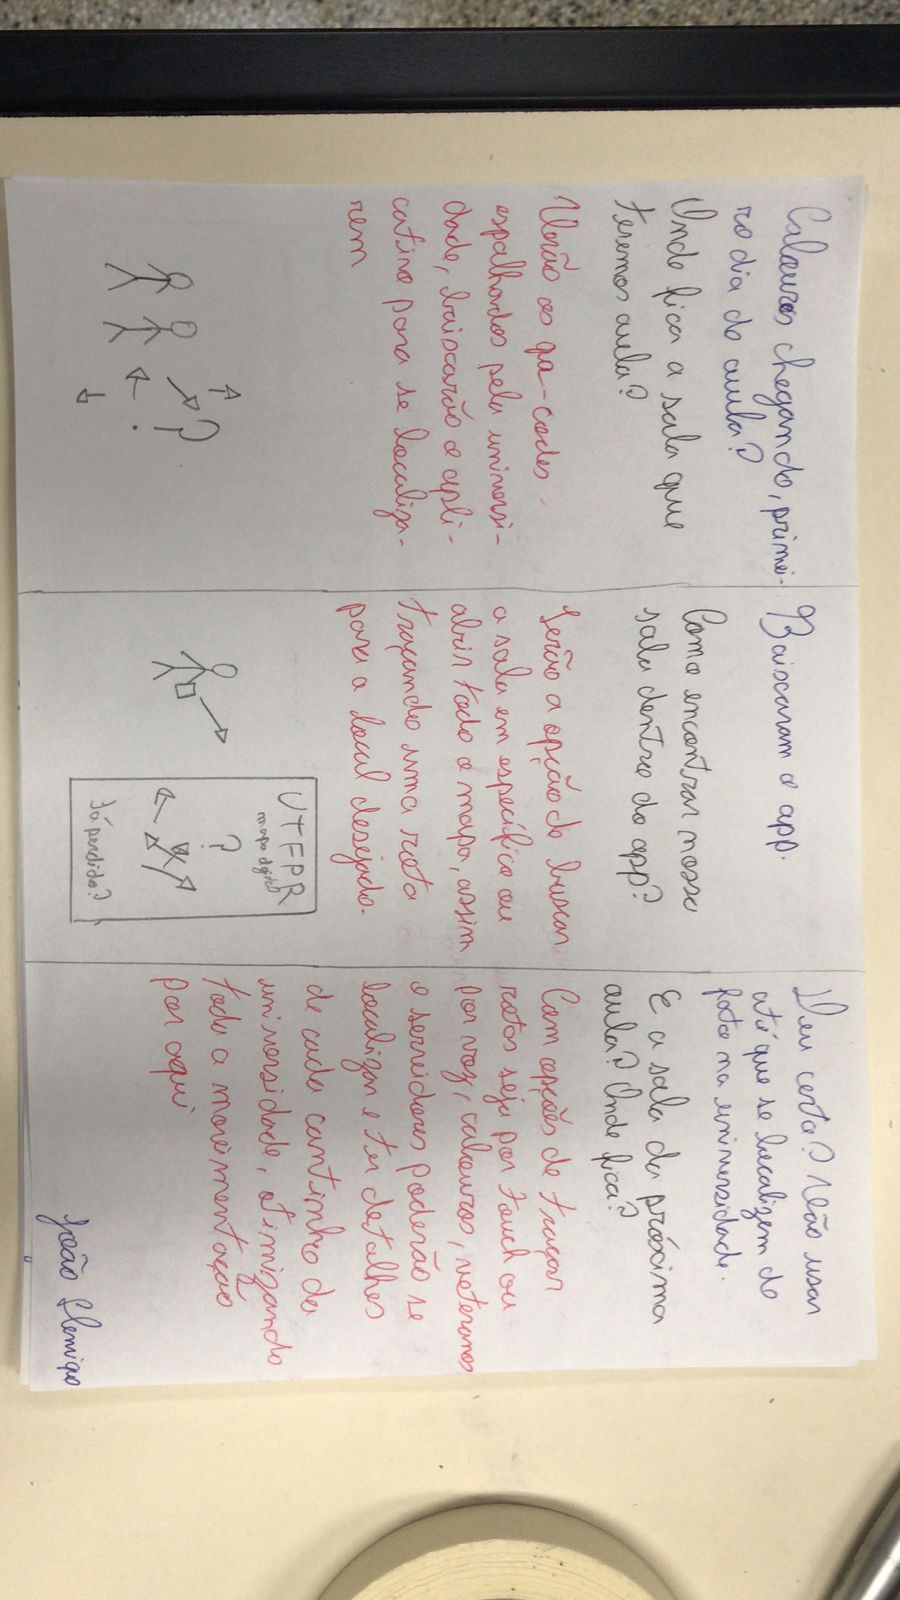 Calouros chegando, primei-
ro dia de aula?
Onde fica a sala que
teremos aula?
Verão os qa-codes
espalhados pela universi-
dade, baixarão o apli-
cativo para se localiza-
rem
?
Baixaram o app.
Como encontrar nossa
sala dentro do app?
Terão a opção de buscar
a sala em específico ou
abrir todo o mapa, assim
traçando uma rota
para o local desejado.
UTFPR
mapa digital
?
Tá perdido?
Deu certo? Vão usar
até que se localizem de
fato na universidade.
E a sala da próxima
aula? Onde fica?
Com opções de traçar
rotas seja por touch ou
por voz, calouros, veteranos
e servidores poderão se
localizar e ter detalhes
de cada cantinho da
universidade, otimizando
toda a movimentação
por aqui
João